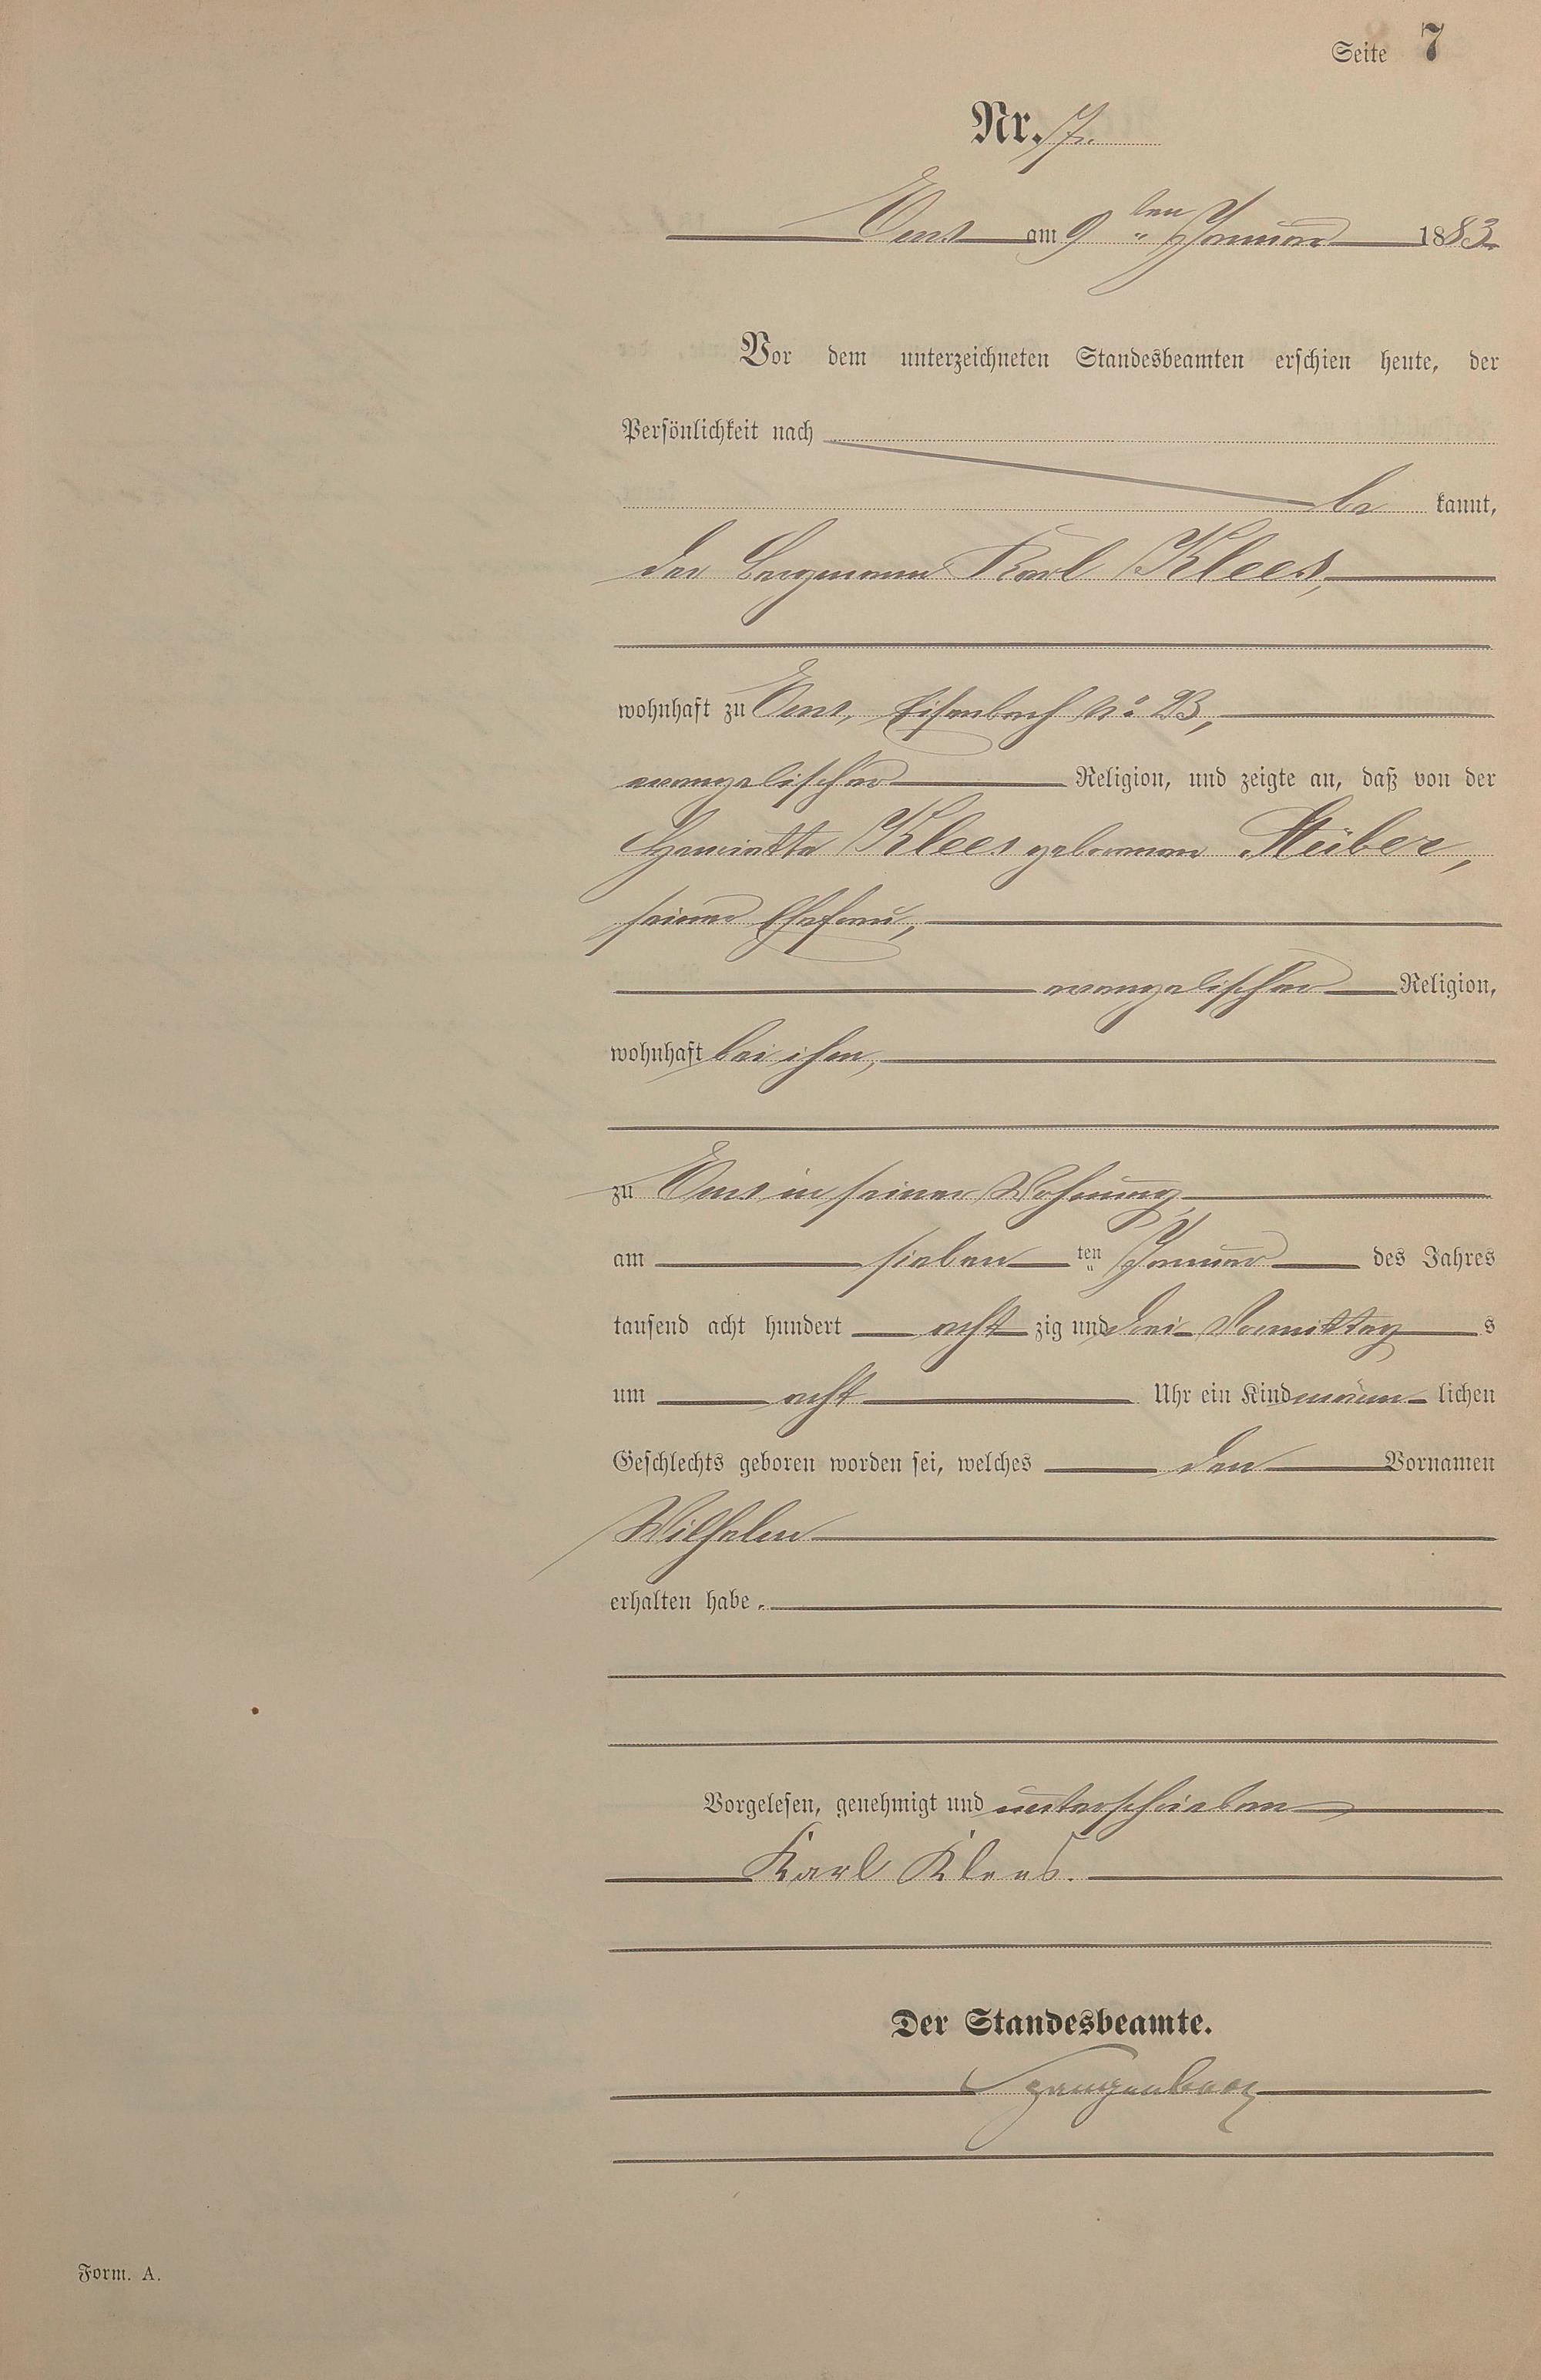 Seite 7
Nr. 7.
Ems am 9ten Januar 1883.
Vor dem unterzeichneten Standesbeamten erschien heute, der
Persönlichkeit nach
be kannt,
der Bergmann Karl Klees,
wohnhaft zu Ems, Eisenbach No. 23,
evangelischer Religion, und zeigte an, daß von der
Henriette Klees geborenen Stüber,
seiner Ehefrau,
evangelischer Religion,
wohnhaft bei ihm,
zu Ems in seiner Wohnung,
am sieben ten Januar des Jahres
tausend acht hundert acht zig und drei Vormittag s
um acht Uhr ein Kind männ lichen
Geschlechts geboren worden sei, welches den Vornamen
Wilhelm
erhalten habe.
Vorgelesen, genehmigt und unterschrieben
Karl Klees.
Der Standesbeamte.
Spangenberg
Form. A.